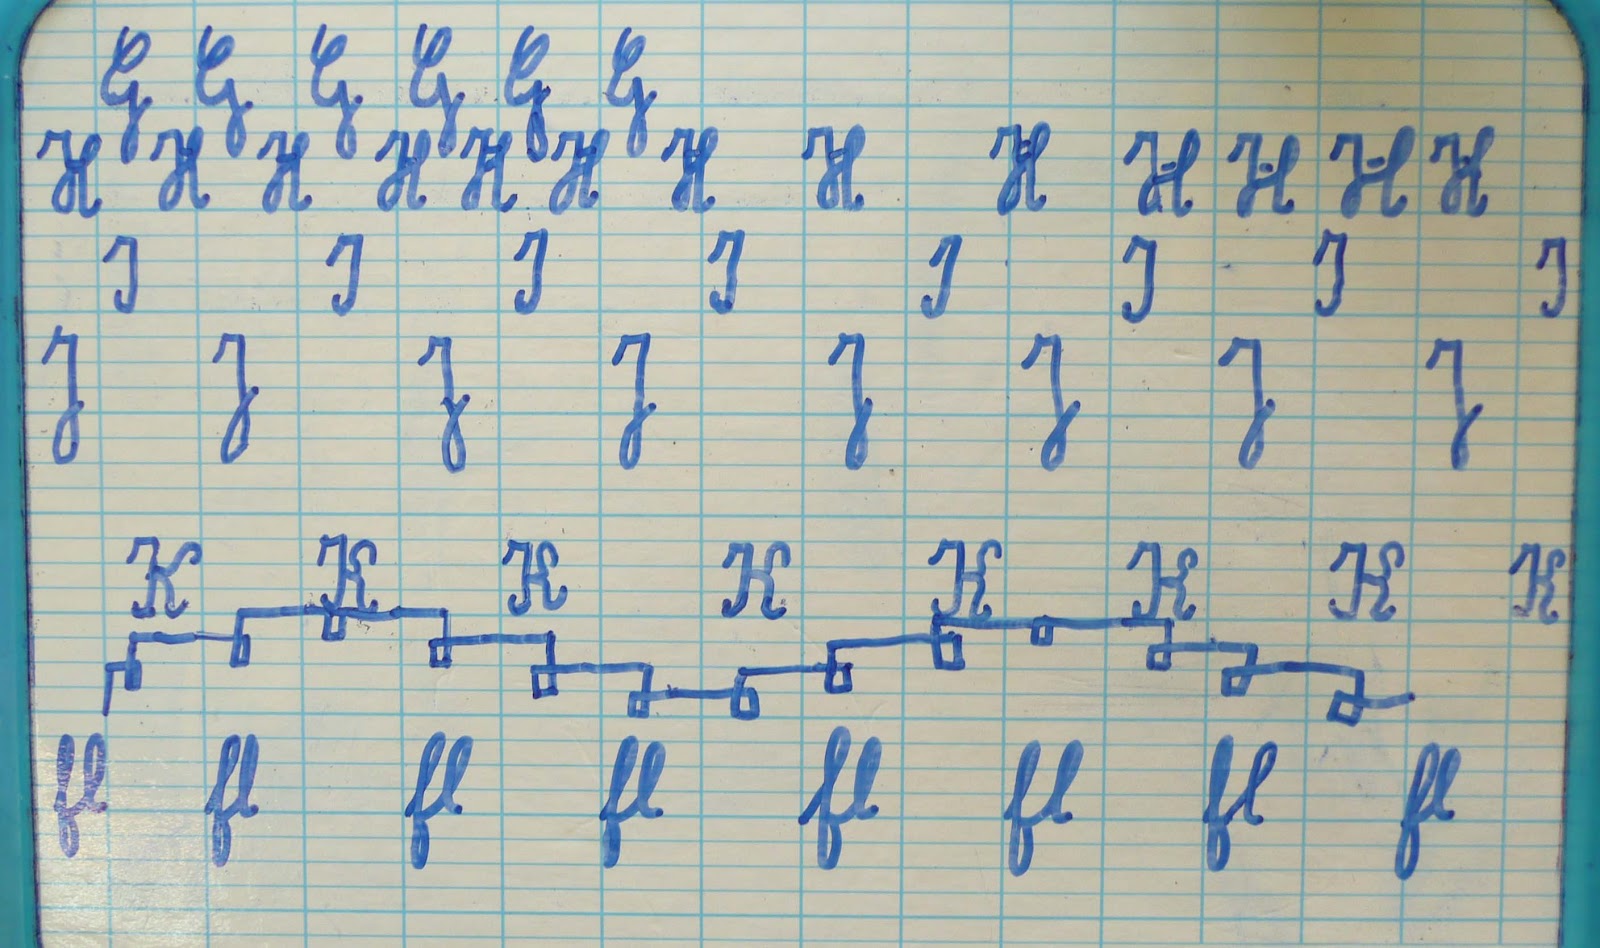 G G G G G G
H H H H H H H H H H H H H
I I I I I I I I
J J J J J J J J
K K K K K K K K
fl fl fl fl fl fl fl fl